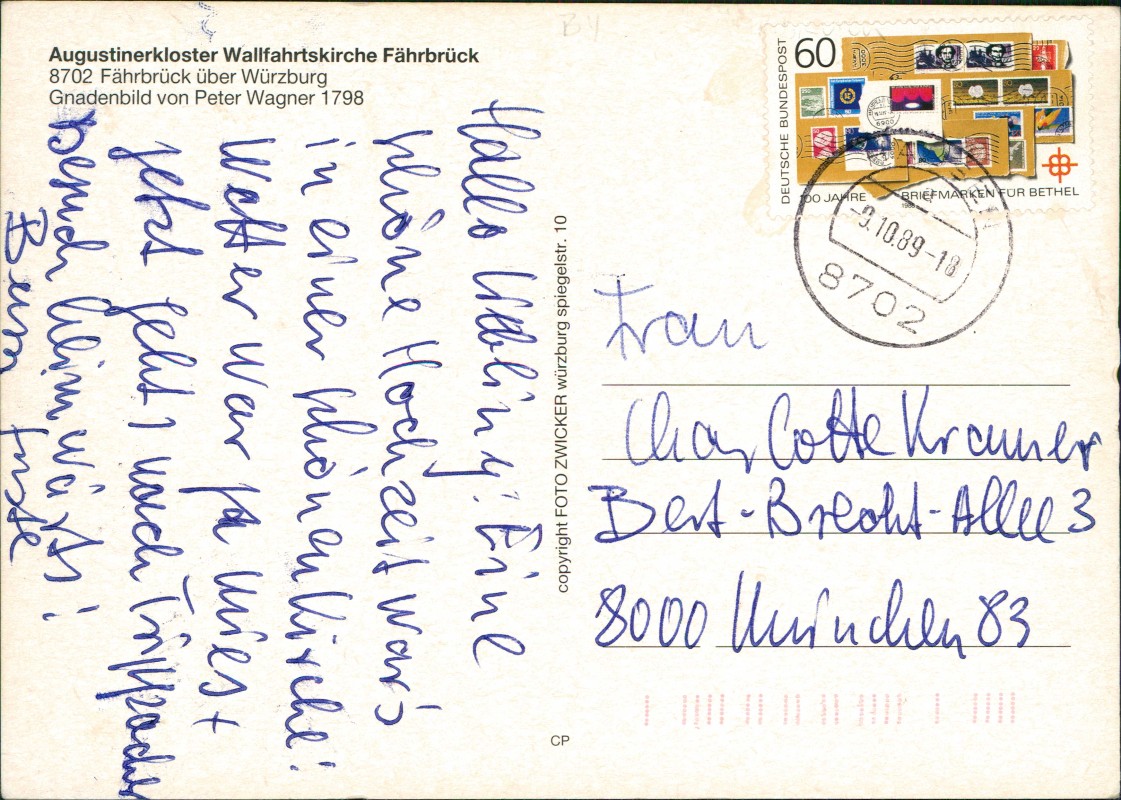 Augustinerkloster Wallfahrtskirche Fährbrück
8702 Fährbrück über Würzburg
Gnadenbild von Peter Wagner 1798
Hallo Eine
schöne Hochzeit war's
in einer schönen Kirche!
Wetter war ja mies +
jetzt geht's nach
Besuch heimwärts!
copyright FOTO ZWICKER würzburg spiegelstr. 10
CP
DEUTSCHE BUNDESPOST
60
100 JAHRE BRIEFMARKEN FÜR BETHEL
1988
-9.10.89-18
8702
Frau
Charlotte Kramer
Bert-Brecht-Allee 3
8000 München 83